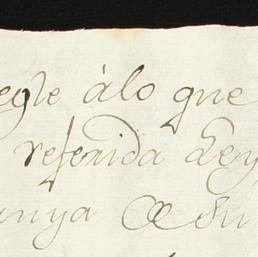 egle àlo que
referida Ley
unya Œ su